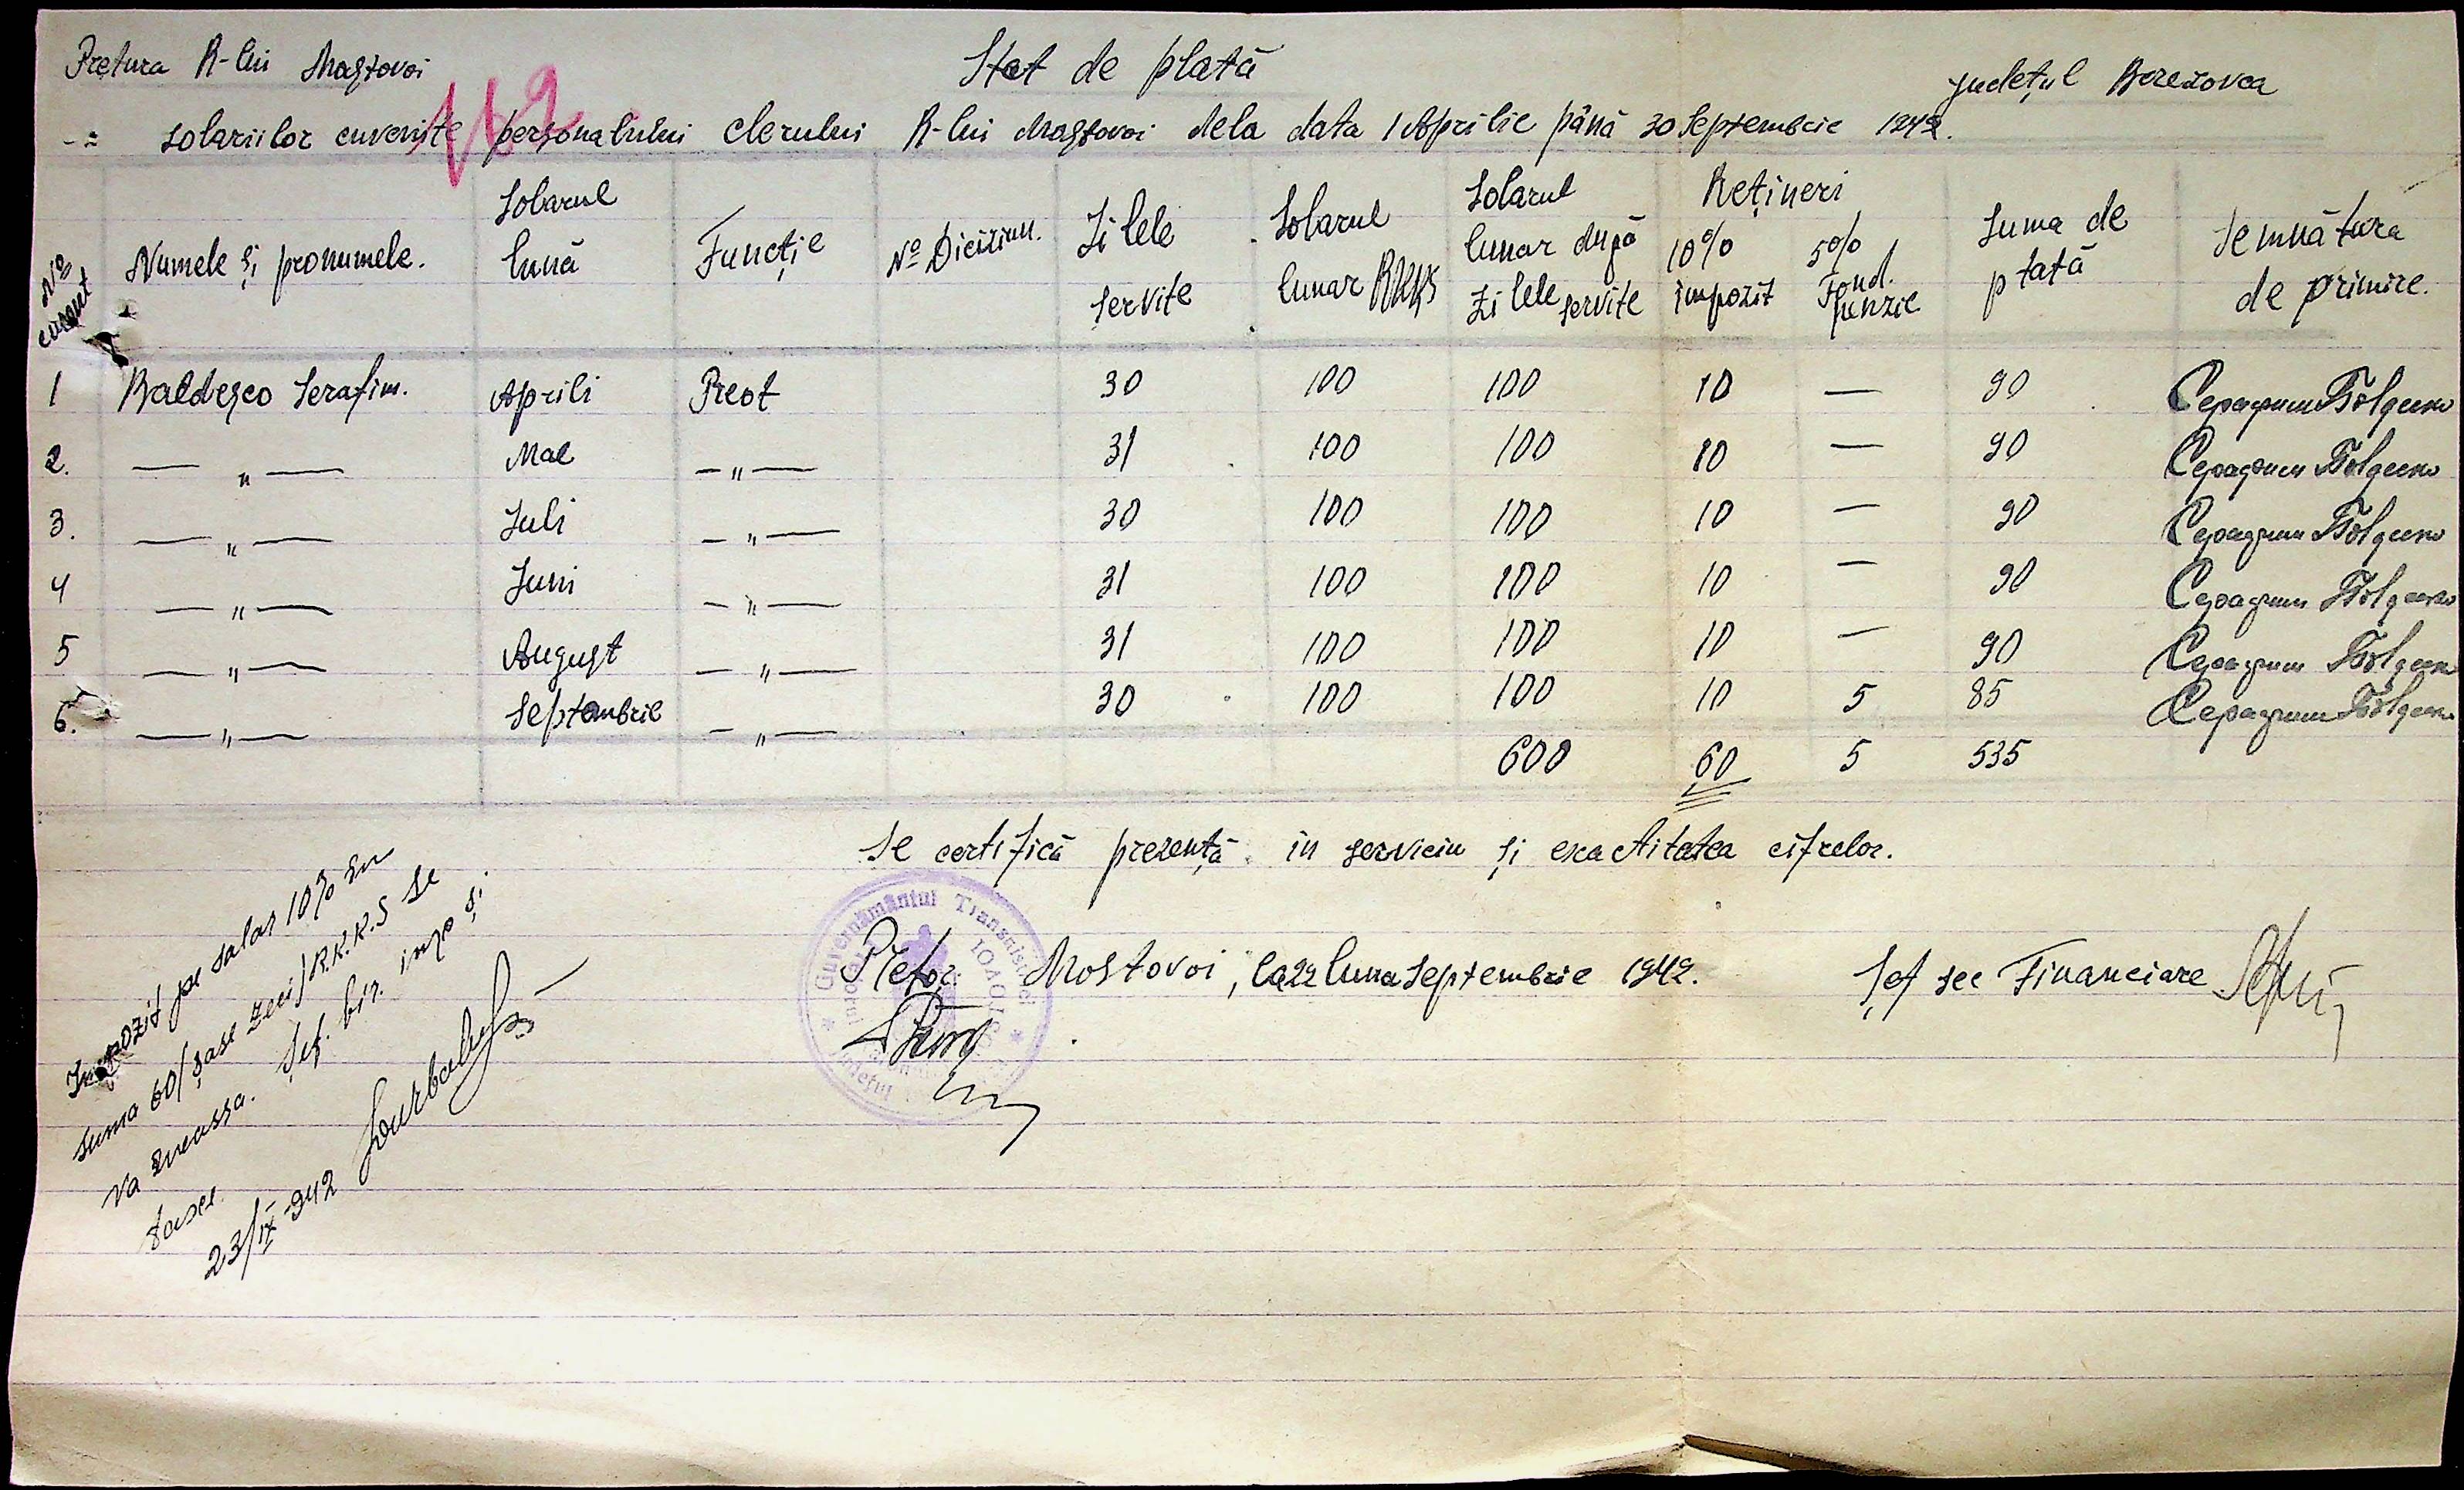 Pretura R-lui Mostovoi
Stat de plată
județul Berezovca
-= solariilor cuvenite personalului clerului R-lui Mostovoi dela data 1 Aprilie până 30 Septembrie 1942.
No curent
Numele și pronumele.
Solarul lună
Funcție
No Diciziun.
Zilele servite
Solarul lunar RKKS
Solarul lunar după zilele servite
Rețineri
10% impozit
5% Fond. penzie
Suma de plată
Semnătura de primire.
1 Baldesco Serafim. Aprili Preot 30 100 100 10 — 90 Серафим Болдеско
2. — „ — Mae — „ — 31 100 100 10 — 90 Серафим Болдеско
3. — „ — Juli — „ — 30 100 100 10 — 90 Серафим Болдеско
4 — „ — Juni — „ — 31 100 100 10 — 90 Серафим Болдеско
5 — „ — August — „ — 31 100 100 10 — 90 Серафим Болдеско
6. — „ — Septembrie — „ — 30 100 100 10 5 85 Серафим Болдеско
600 60 5 535
Se certifică prezență in serviciu și exactitatea cifrelor.
Guvernământul Transnistriei
Județul
Pretor Mostovoi, la 22 luna Septembrie 1942.
Șef sec Financiare
Impozit pe salar 10% în
suma 60/șase zeci/R.K.K.S se
va încassa. Șef. bir. impo și
taxe
23/IX-942